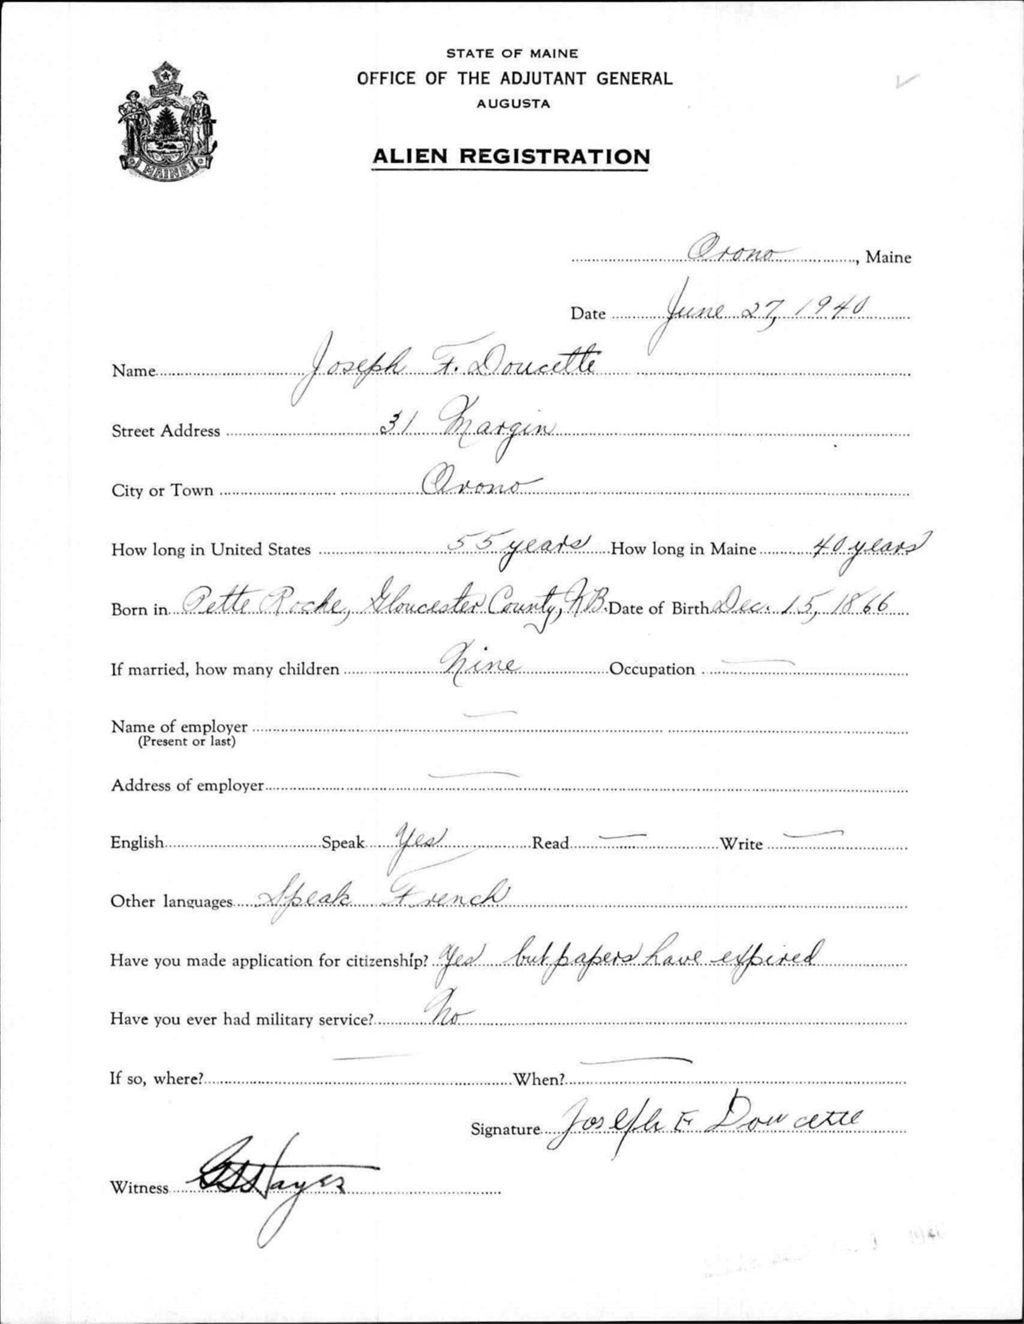 STATE OF MAINE
OFFICE OF THE ADJUTANT GENERAL
AUGUSTA
ALIEN REGISTRATION
MAINE
Orono, Maine
Date June 27, 1940
Name Joseph F. Doucette
Street Address 31 Margin
City or Town Orono
How long in United States 55 years How long in Maine 40 years
Born in Pette Roche, Gloucester County, N.B. Date of Birth Dec. 15, 1866
If married, how many children Nine Occupation —
Name of employer —
(Present or last)
Address of employer —
English Speak Yes Read — Write —
Other languages Speak French
Have you made application for citizenship? Yes but papers have expired
Have you ever had military service? No
If so, where? — When? —
Signature Joseph F Doucette
Witness Hayes